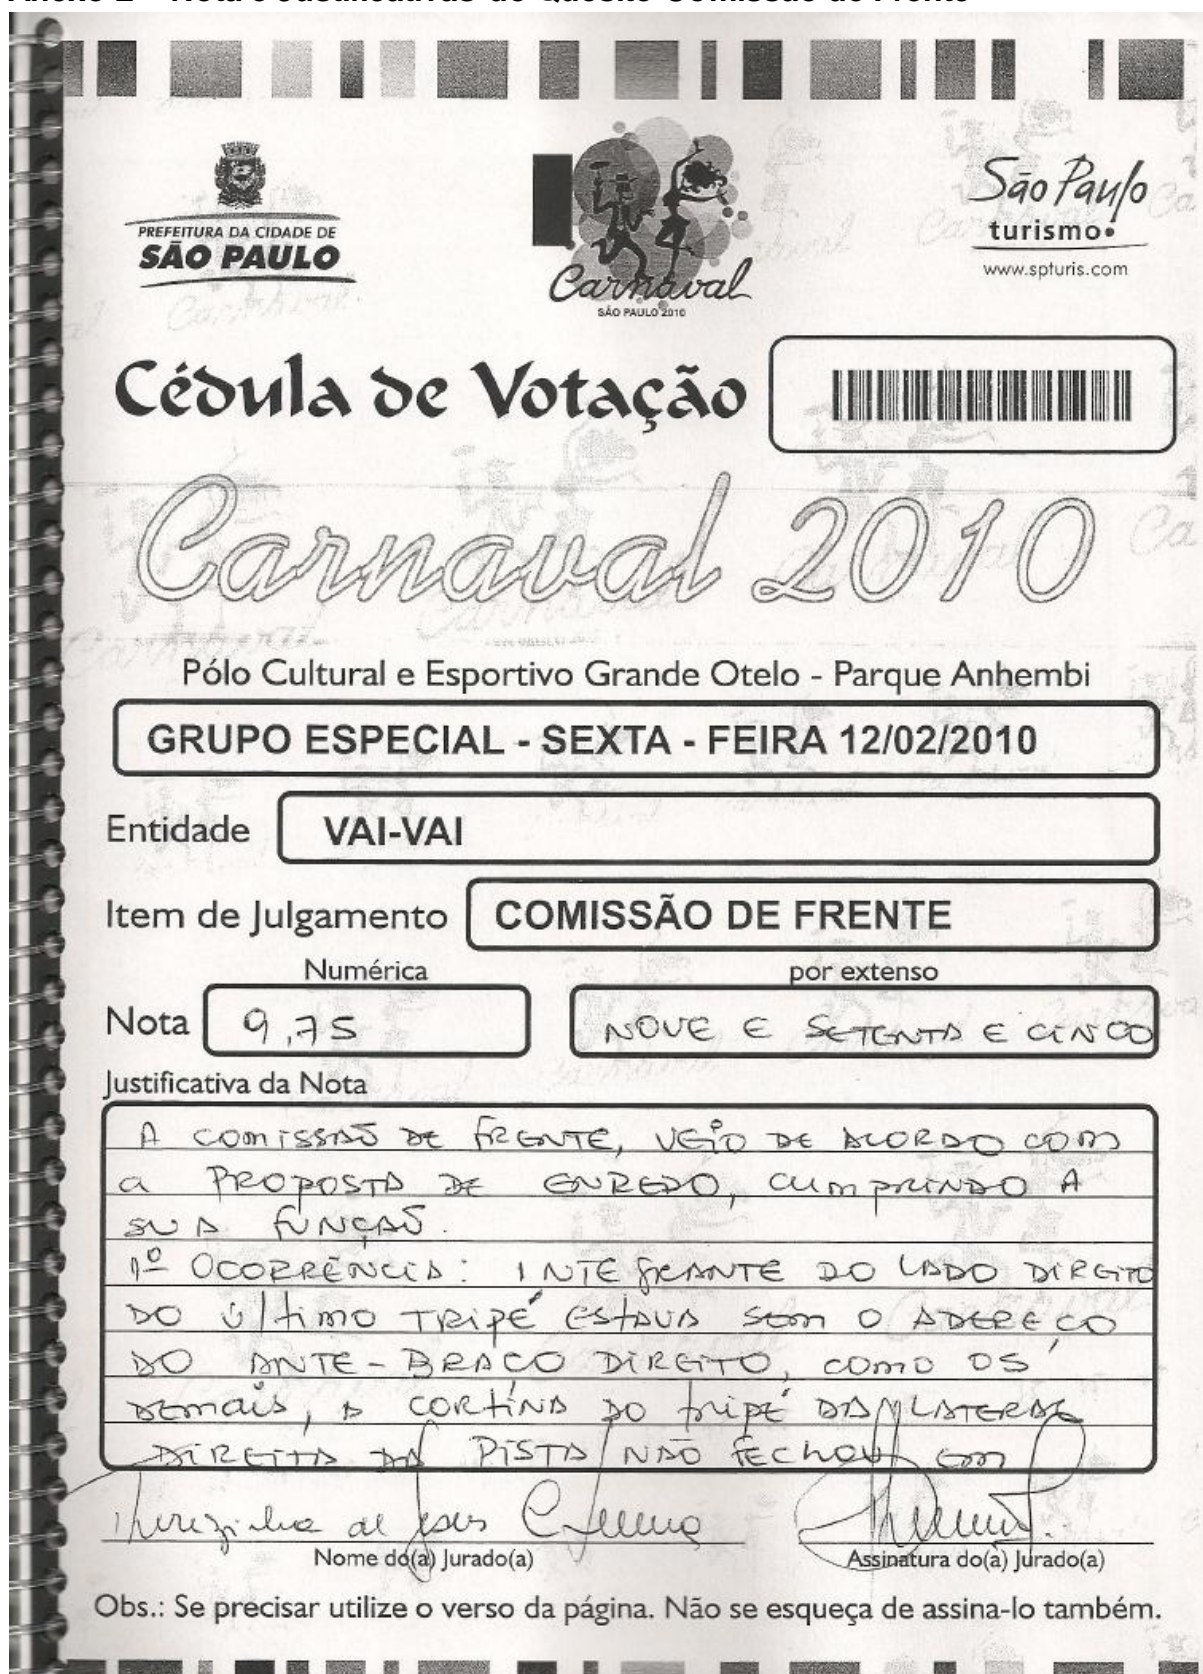 Anexo 2 – Nota e Justificativas do Quesito Comissão de Frente
PREFEITURA DA CIDADE DE
SÃO PAULO
Carnaval
SÃO PAULO 2010
São Paulo
turismo
www.spturis.com
Cédula de Votação
Carnaval 2010
Pólo Cultural e Esportivo Grande Otelo - Parque Anhembi
GRUPO ESPECIAL - SEXTA - FEIRA 12/02/2010
Entidade VAI-VAI
Item de Julgamento COMISSÃO DE FRENTE
Numérica por extenso
Nota 9,75 NOVE E SETENTA E CINCO
Justificativa da Nota
A COMISSÃO DE FRENTE, VEIO DE ACORDO COM
a PROPOSTA DE ENREDO, CUMPRINDO A
SUA FUNÇÃO.
1º OCORRÊNCIA: INTEGRANTE DO LADO DIREITO
DO ÚLTIMO TRIPÉ ESTAVA SEM O ADEREÇO
DO ANTE-BRAÇO DIREITO, COMO OS
DEMAIS, A CORTINA DO TRIPÉ DA LATERAL
DIREITA DA PISTA NÃO FECHOU EM
Terezinha de Jesus
Nome do(a) Jurado(a) Assinatura do(a) Jurado(a)
Obs.: Se precisar utilize o verso da página. Não se esqueça de assina-lo também.